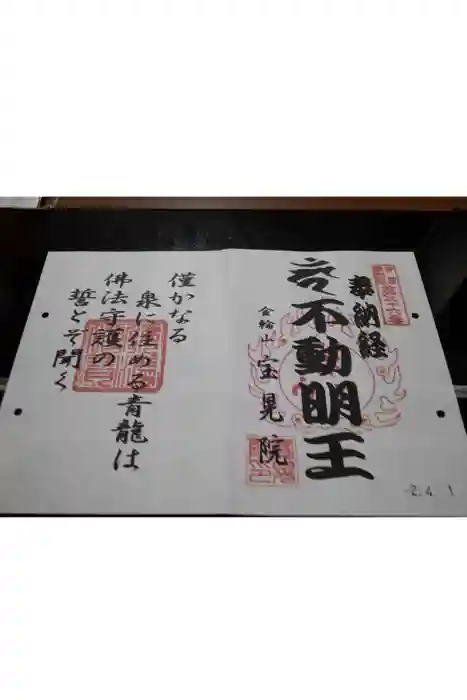 奉納経
不動明王
金輪山 宝晃院
2.4.1
僅かなる
泉に住める青龍は
佛法守護の
誓とぞ聞く